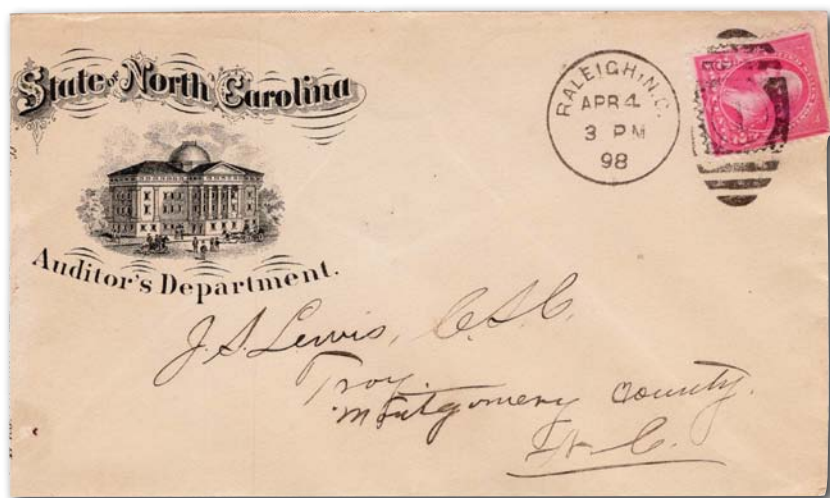 State of North Carolina
Auditor's Department.
RALEIGH, N.C.
APR 4
3 PM
98
1
J. S. Lewis, C.S.C.
Troy.
Montgomery County.
N.C.